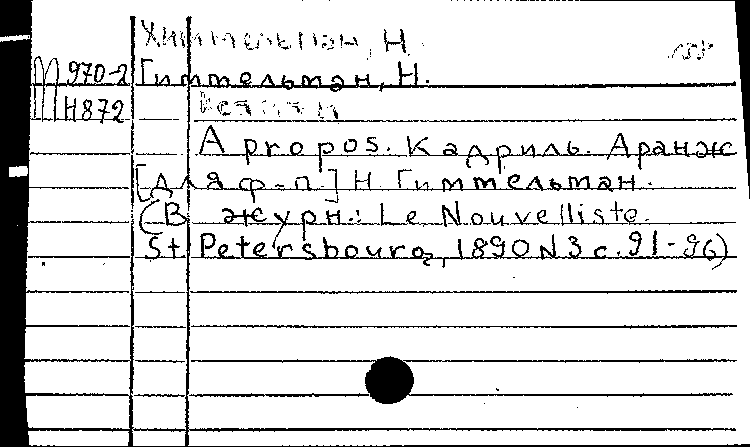 Химмельман, Н.
М 970-2 Гиммельман, Н.
Н872
A propos. Кадриль. Аранж
[для ф-п.] Н Гиммельман.
(В журн.: Le Nouvelliste.
St Petersbourg, 1890 N3 с. 91-96)